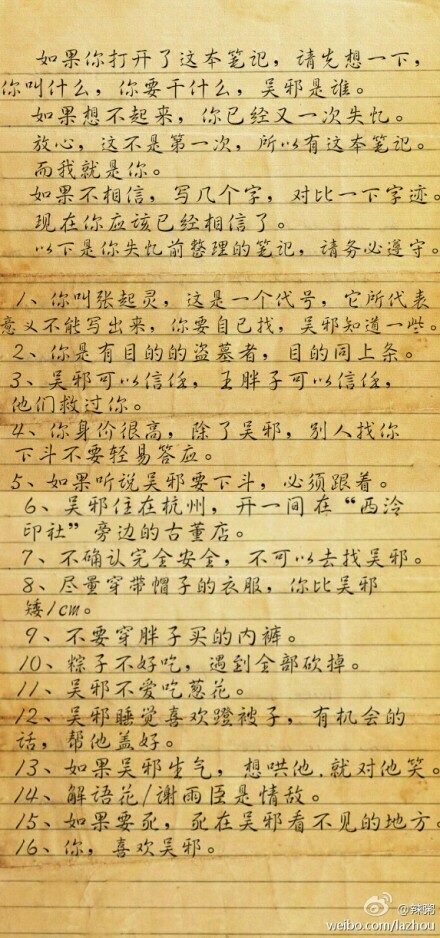 如果你打开了这本笔记，请先想一下，
你叫什么，你要干什么，吴邪是谁。
如果想不起来，你已经又一次失忆。
放心，这不是第一次，所以有这本笔记。
而我就是你。
如果不相信，写几个字，对比一下字迹。
现在你应该已经相信了。
以下是你失忆前整理的笔记，请务必遵守。
1、你叫张起灵，这是一个代号，它所代表
意义不能写出来，你要自己找，吴邪知道一些。
2、你是有目的的盗墓者，目的同上条。
3、吴邪可以信任，王胖子可以信任，
他们救过你。
4、你身价很高，除了吴邪，别人找你
下斗不要轻易答应。
5、如果听说吴邪要下斗，必须跟着。
6、吴邪住在杭州，开一间在“西泠
印社”旁边的古董店。
7、不确认完全安全，不可以去找吴邪。
8、尽量穿带帽子的衣服，你比吴邪
矮1cm。
9、不要穿胖子买的内裤。
10、粽子不好吃，遇到全部砍掉。
11、吴邪不爱吃葱花。
12、吴邪睡觉喜欢蹬被子，有机会的
话，帮他盖好。
13、如果吴邪生气，想哄他.就对他笑。
14、解语花/谢雨臣是情敌。
15、如果要死，死在吴邪看不见的地方。
16、你，喜欢吴邪。
@辣粥
weibo.com/lazhou